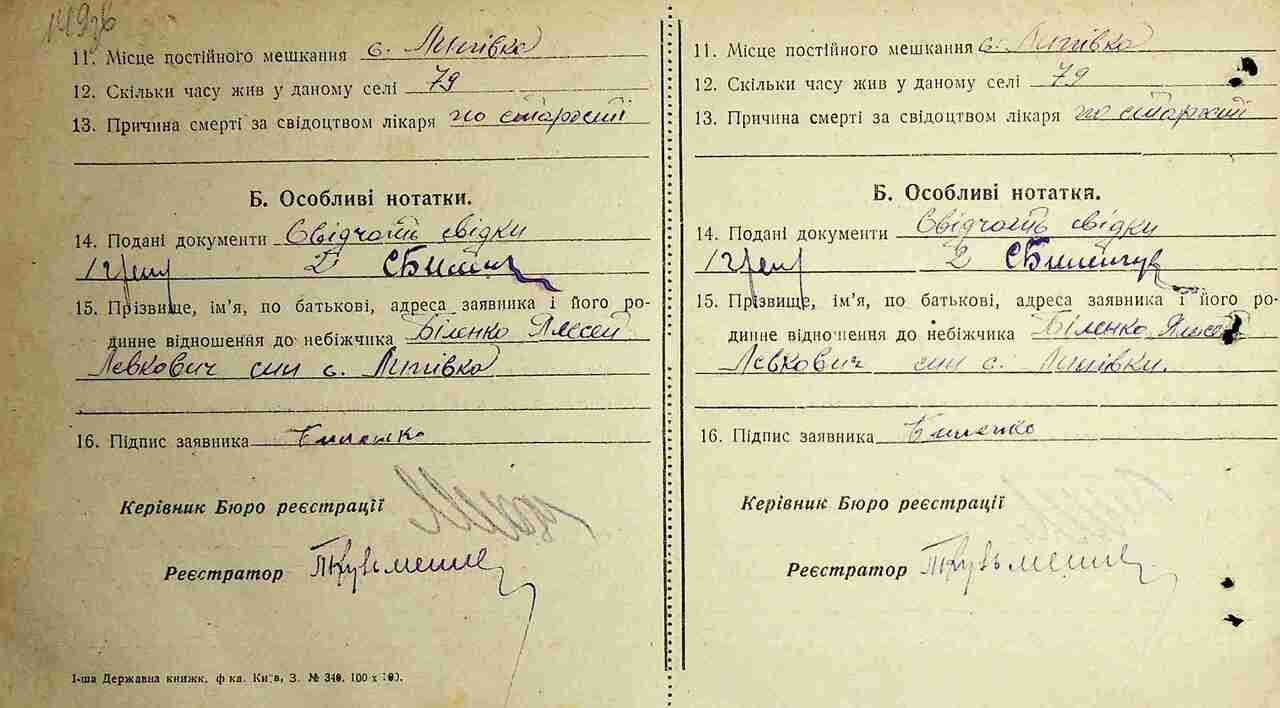 11. Місце постійного мешкання с. Липівка
12. Скільки часу жив у даному селі 79
13. Причина смерті за свідоцтвом лікаря по старости
Б. Особливі нотатки.
14. Подані документи Свідчать свідки
1 2
15. Прізвище, ім'я, по батькові, адреса заявника і його ро-
динне відношення до небіжчика Біленко
Левкович син с. Липівка
16. Підпис заявника Биленко
Керівник Бюро реєстрації
Реєстратор ПКузьменко
1-ша Державна книжк. ф-ка. Київ, З. № 349. 100 х
11. Місце постійного мешкання с. Липівка
12. Скільки часу жив у даному селі 79
13. Причина смерті за свідоцтвом лікаря по старости
Б. Особливі нотатки.
14. Подані документи Свідчать свідки
1 2
15. Прізвище, ім'я, по батькові, адреса заявника і його ро-
динне відношення до небіжчика Біленко
Левкович син с. Липівки.
16. Підпис заявника Биленко
Керівник Бюро реєстрації
Реєстратор ПКузьменко